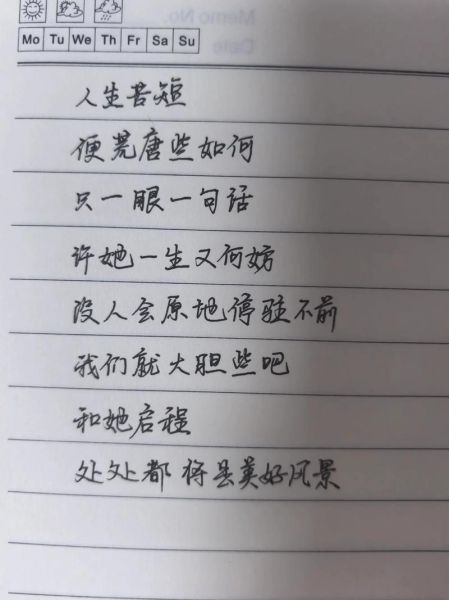 Mo Tu We Th Fr Sa Su
Memo No.
Date
人生苦短
便荒唐些如何
只一眼一句话
许她一生又何妨
没人会原地停驻不前
我们就大胆些吧
和她启程
处处都将是美好风景